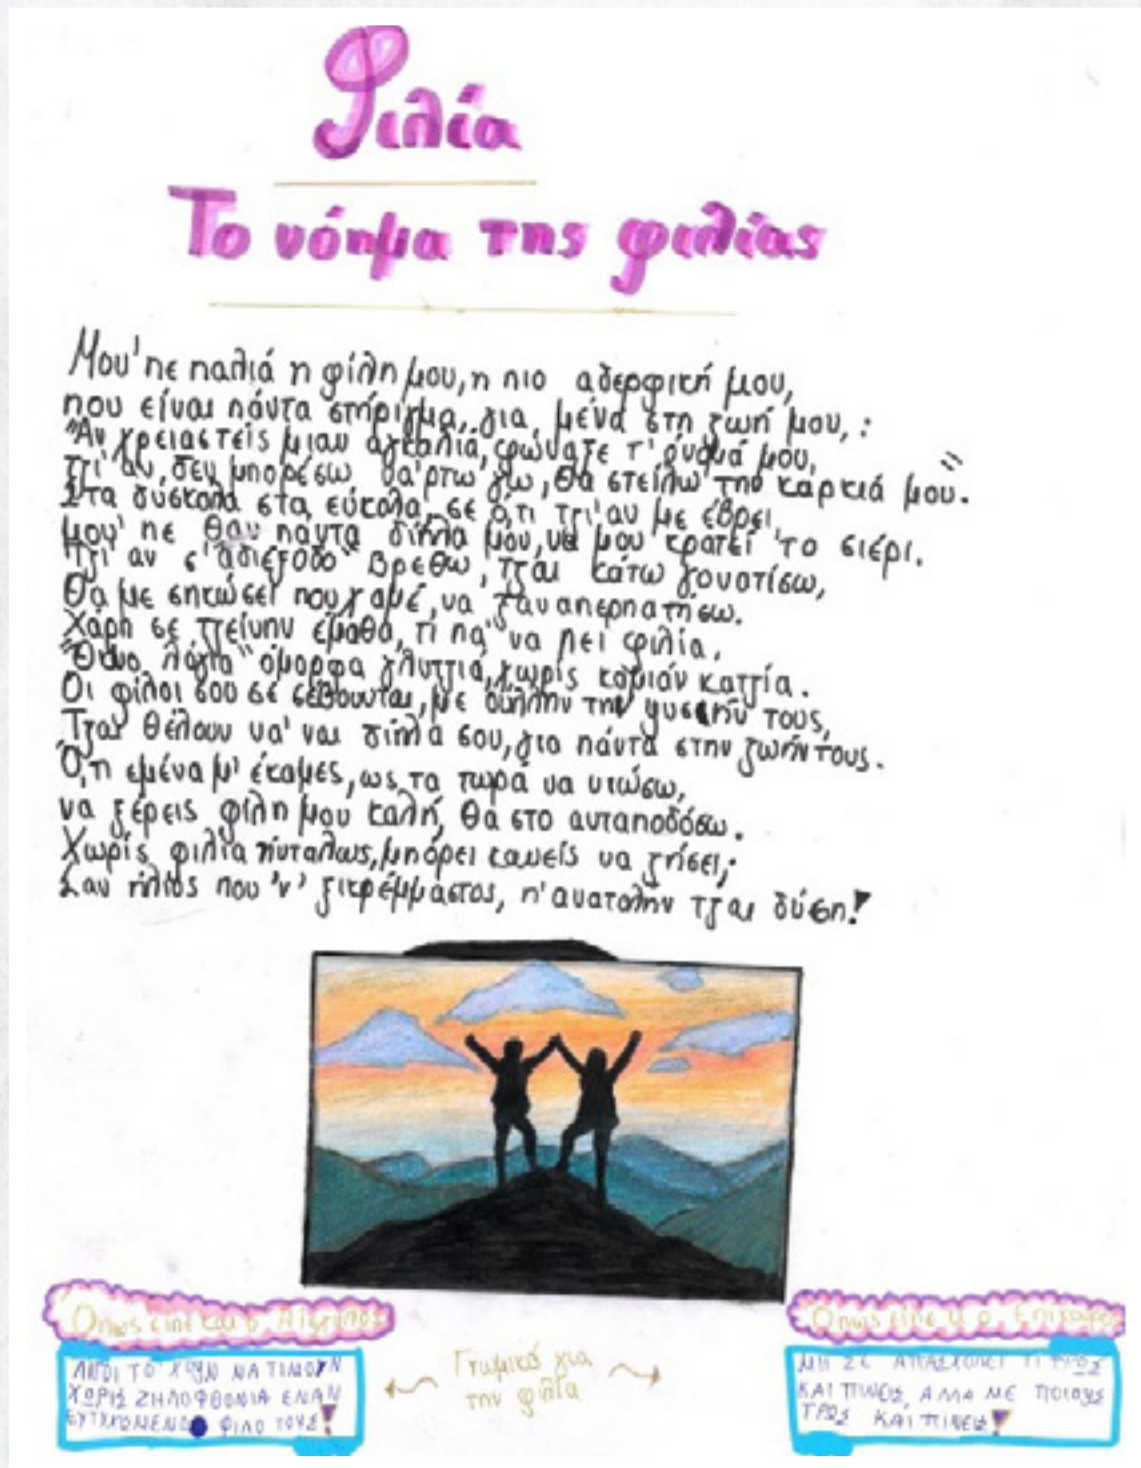 Φιλία
Το νόημα της φιλίας
Μου'πε παλιά η φίλη μου, η πιο αδερφική μου,
που είναι πάντα στήριγμα, για μένα στη ζωή μου, :
"Αν χρειαστείς μιαν αγκαλιά, φώναξε τ' όνομά μου,
τζι' αν δεν μπορέσω να'ρτω γιω, θα στείλω την καρκιά μου."
Στα δύσκολα στα εύκολα, σε ό,τι τζι'αν με έβρει,
μου' πε θαν πάντα δίπλα μου, να μου κρατεί το σιέρι.
Τζι' αν σ' "αδιέξοδο" βρεθω, τζαι κάτω γονατίσω,
θα με σηκώσει που χαμέ, να ξαναπερπατήσω.
Χάρη σε τζείνην έμαθα, τί πα' να πει φιλία,
λόγια" όμορφα γλυτζιά, χωρίς καμιάν κατζία.
Οι φίλοι σου σε σέβουνται, με ούλλην την ψυσιήν τους,
Τζαι θέλουν να' ναι δίπλα σου, για πάντα στην ζωήν τους.
Ό,τι εμένα μ' έκαμες, ως τα τωρά να νιώσω,
να ξέρεις φίλη μου καλή, θα στο ανταποδόσω.
Χωρίς φιλία πλάσμα, μπόρει κανείς να ζήσει;
Σαν ήλιος που 'ν' ξικρέμμαστος, π'ανατολήν τζαι δύση!
Όπως είπε και ο Αίσχυλος
ΛΙΓΟΙ ΤΟ ΧΟΥΝ ΝΑ ΤΙΜΟΥΝ
ΧΩΡΙΣ ΖΗΛΟΦΘΟΝΙΑ ΕΝΑΝ
ΕΥΤΥΧΙΣΜΕΝΟ ΦΙΛΟ ΤΟΥΣ!
Γνωμικό για
την φιλία
Όπως είπε κ ο Επίκουρος
ΜΗ ΣΕ ΑΠΑΣΧΟΛΕΙ ΤΙ ΤΡΩΣ
ΚΑΙ ΠΙΝΕΙΣ, ΑΛΛΑ ΜΕ ΠΟΙΟΥΣ
ΤΡΩΣ ΚΑΙ ΠΙΝΕΙΣ!